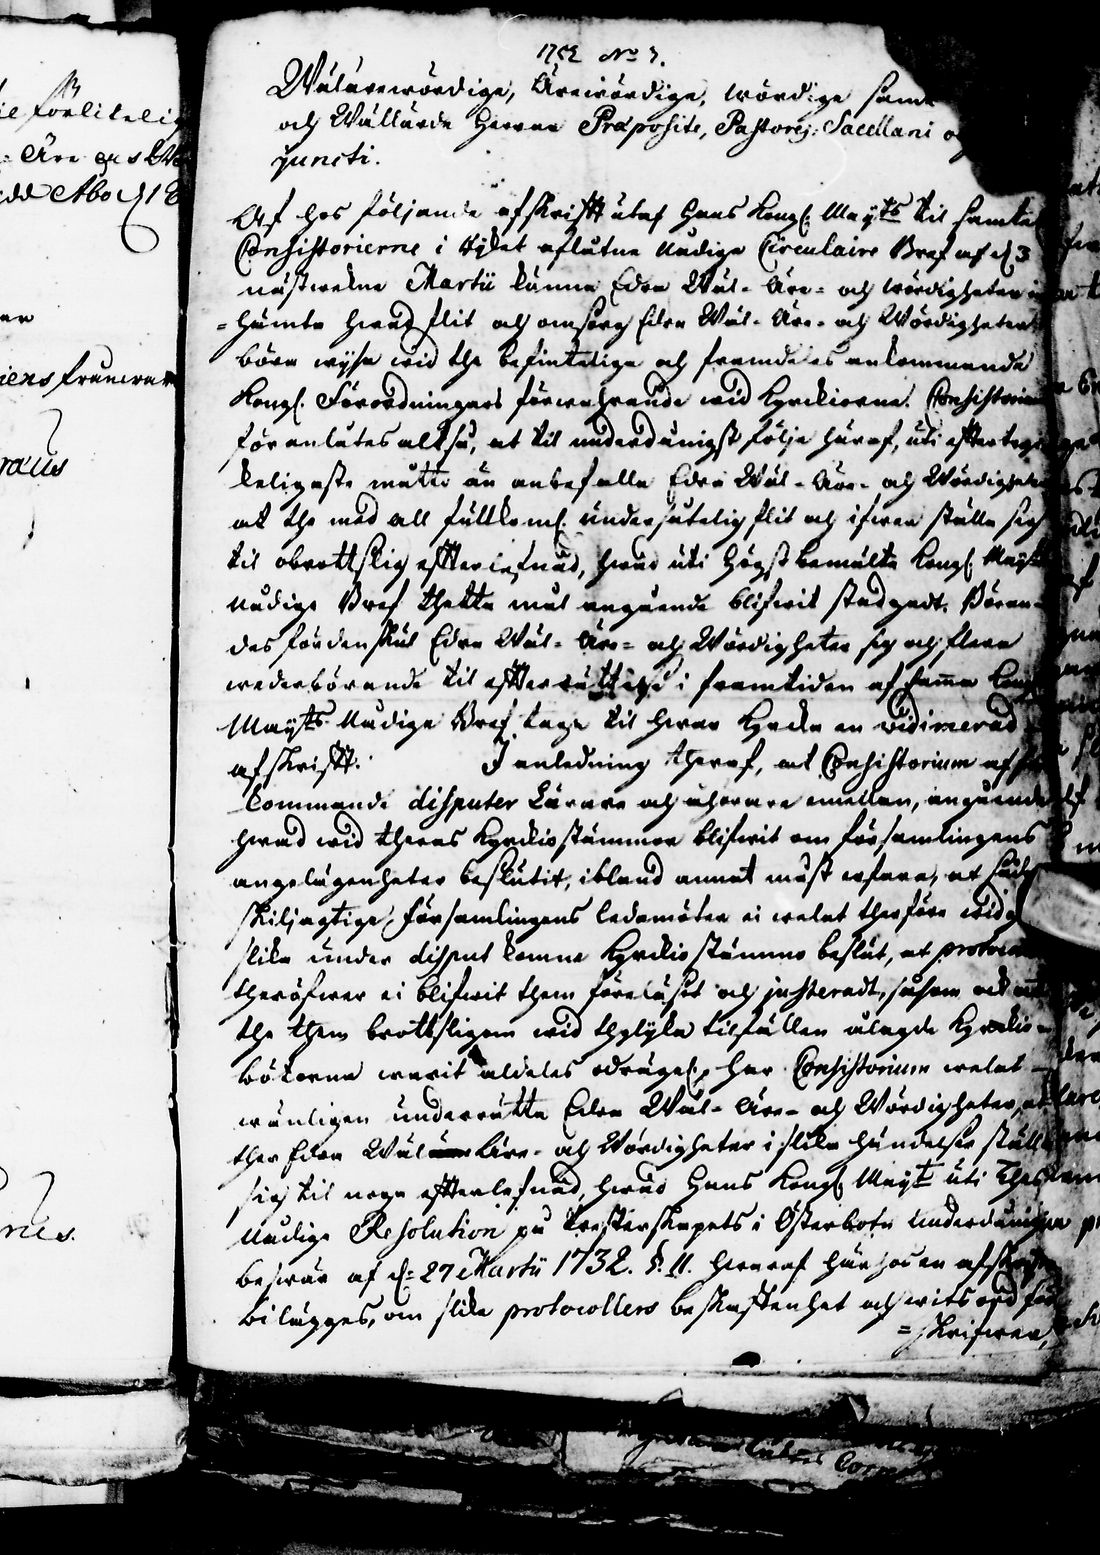 1752 No 3.
Wälärewördige, Ärewördige, wördige samt
och Wällärde Herrar Præposite, Pastores, Sacellani o
juncti.
Af hos följande afskrifft utaf Hans Kongl. Mayts til samtel
Consistorierne i Riket aflåtne Nådige Circulaire Bref af d. 3
nästwekne Martii känna Edra Wäl- Äre- och wördigheter in
=hämta hwad flit och omsorg Edra Wäl- Äre- och Wördigheter
böra wysa wid the befinteliga och framdeles ankommande
Kongl. Förordningars förwahrande wid Kyrkiorne. Consistorium
föranlåtes altså, at til underdånigst följe häraf, uti efftertryc
keligaste måtto än anbefalla Edra Wäl- Äre- och Wördigheter
at the med all fullkoml. undersåtelig flit och ifwer ställa sig
til obrottslig effterlefnad, hwad uti Högst bemälte Kongl. Mayts
Nådige Bref thetta mål angående blifwit stadgadt. Böran-
des fördenskul Edra Wäl- Äre- och Wördigheter sig och flere
wederbörande til effterrättelse i framtiden af samma Kongl
Mayts Nådige Bref taga til hwar Kyrka en vidimerad
afskrifft. I anledning theraf, at Consistorium af
kommande disputer Lärare och åhörare emellan, angående
hwad wid theras Kyrkiostämmor blifwit om församlingens
angelägenheter beslutit, ibland annat måst erfara, at
skiljagtige församlingens ledamöter ei welat therföre wid
slika under disput komne Kyrkiostämmo beslut, at protocoll
theröfwer ei blifwit them föreläsit och justeradt, såsom ock at
the them brottsligom wid thylyka tilfällen ålagde Kyrkio-
böterna warit aldeles odrägel., har Consistorium welat
wänligen underrätta Edra Wäl- Äre- och Wördigheter, at
ther Edra Wäl Äre- och Wördigheter i slika händelser ställa
sig til noga effterlefnad, hwad Hans Kongl. Mayt uti Thes
Nådige Resolution på Presterskapets i Österbotn Underdånige
beswär af d. 27 Martii 1732. §. 11. hwaraf härhos en afskrifft
bilägges, om slika protocollers beskaffenhet och witsord för
=skrifwer,